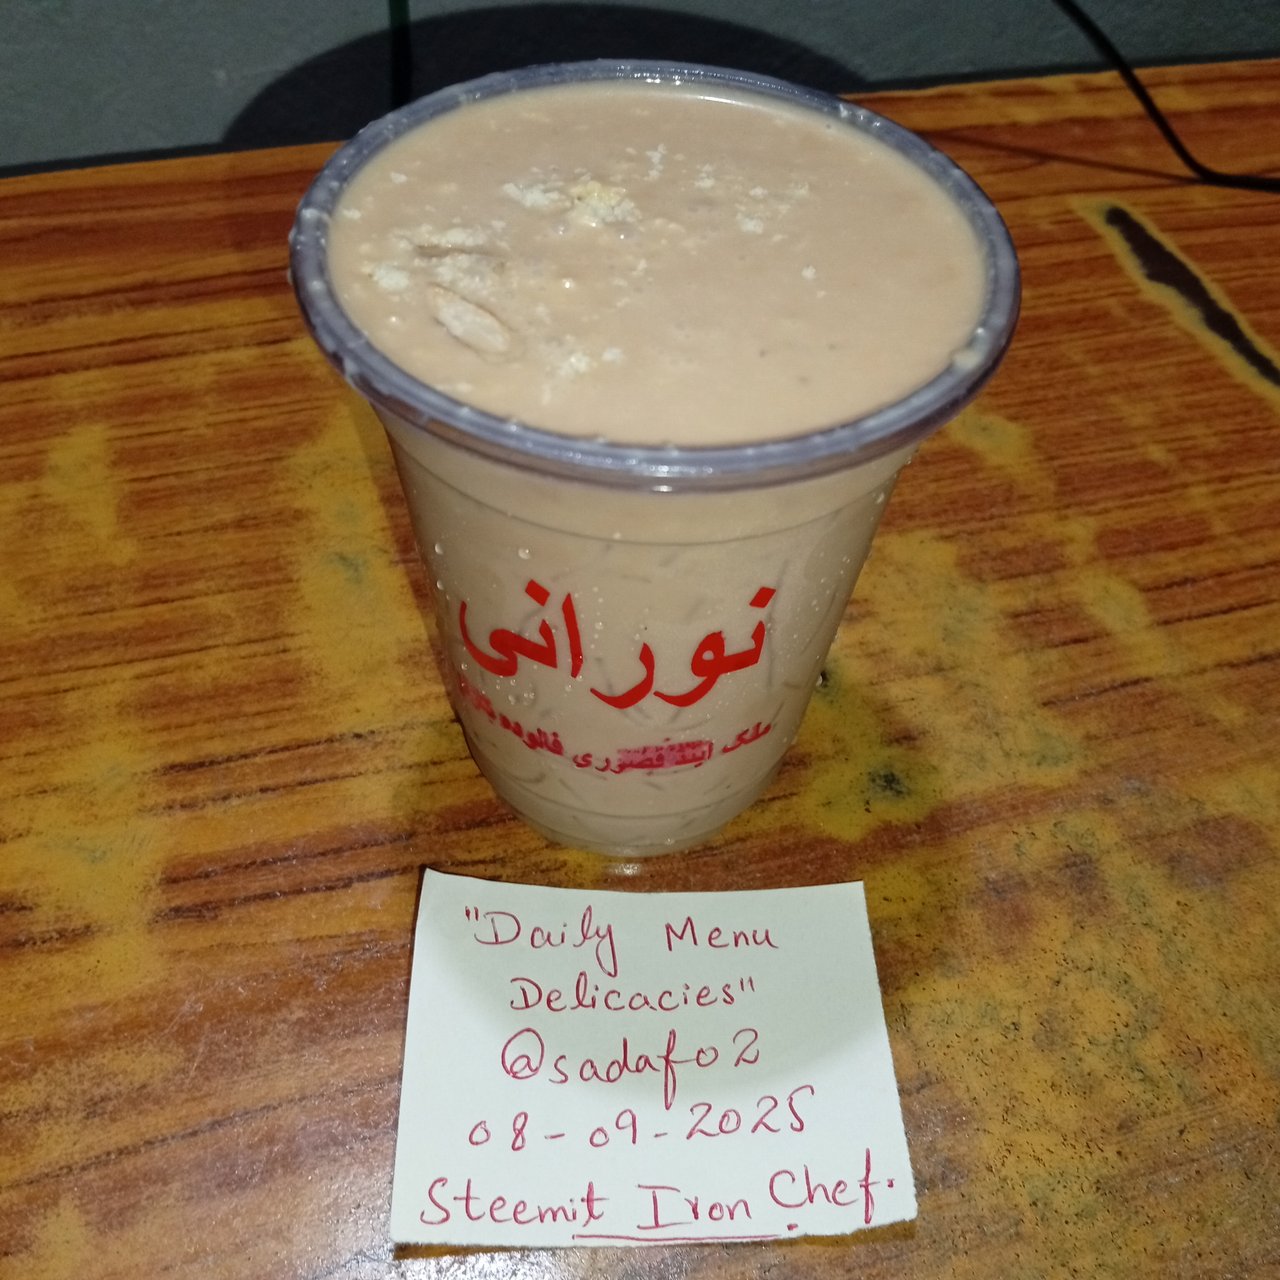 نورانی
ملک اینڈ قصوری فالودہ
"Daily Menu
Delicacies"
@sadaf02
08-09-2025
Steemit Iron Chef.